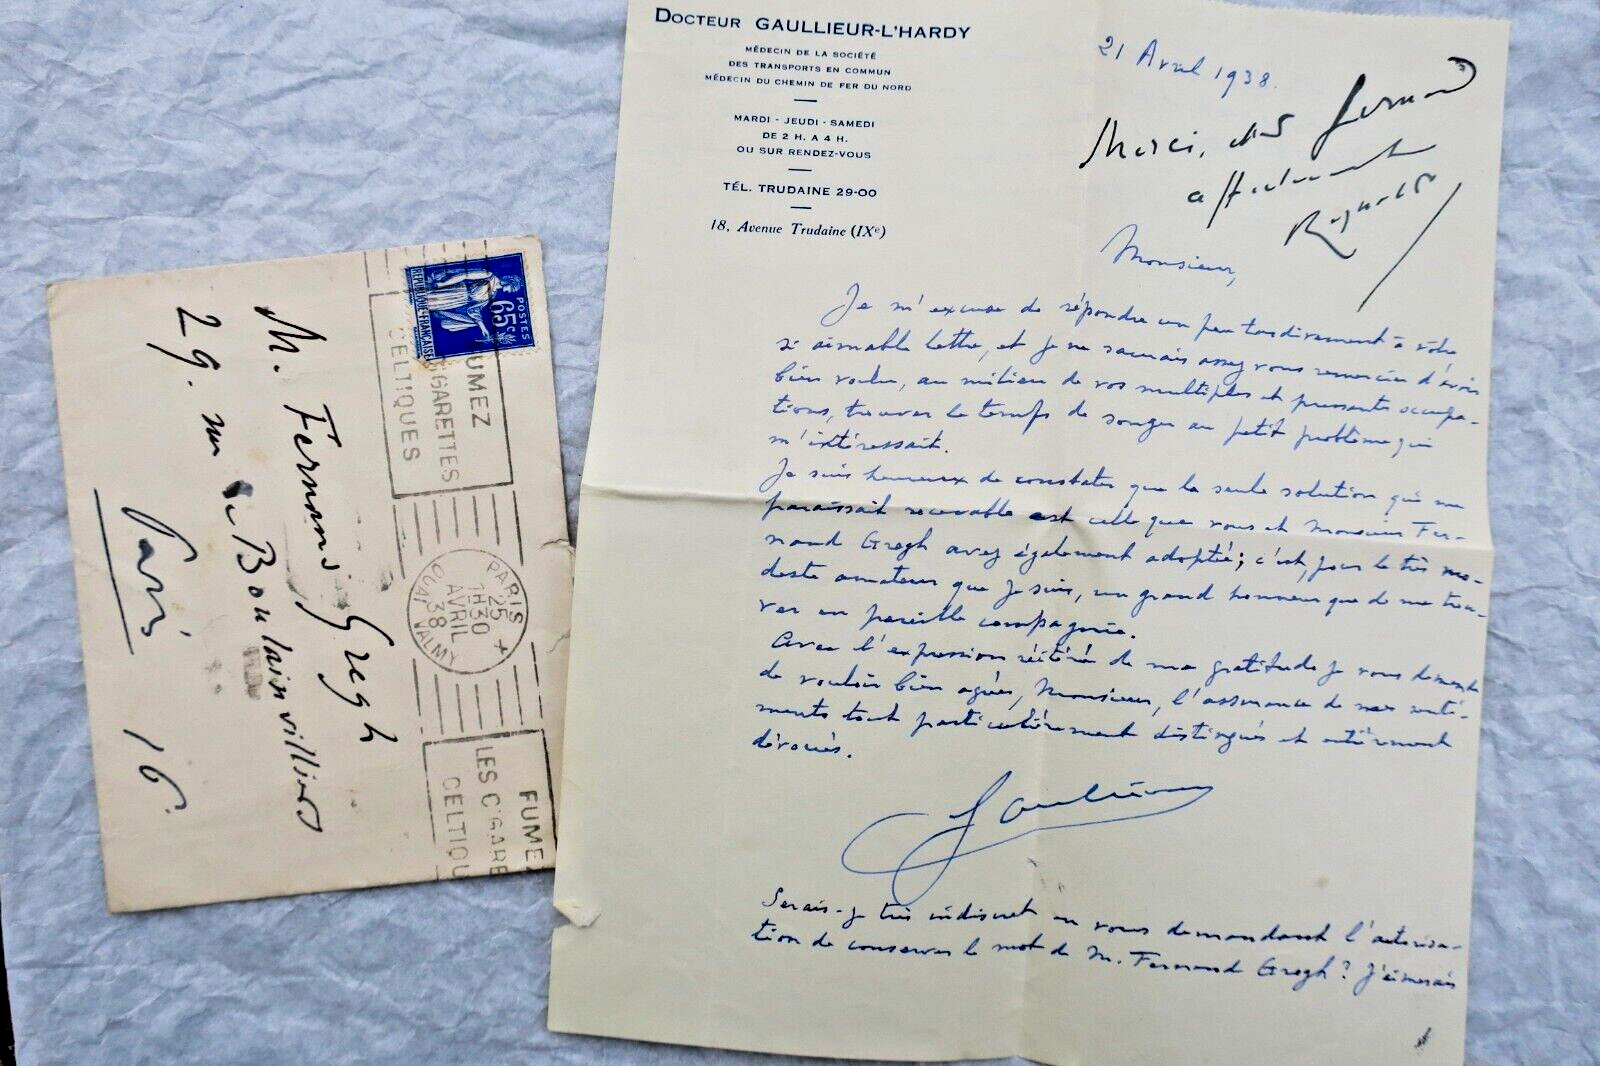 DOCTEUR GAULLIEUR-L'HARDY
MÉDECIN DE LA SOCIÉTÉ
DES TRANSPORTS EN COMMUN
MÉDECIN DU CHEMIN DE FER DU NORD
MARDI - JEUDI - SAMEDI
DE 2 H. A 4 H.
OU SUR RENDEZ-VOUS
TÉL. TRUDAINE 29-00
18, Avenue Trudaine (IXe)
21 Avril 1938.
Merci, Fernand
affectueusement
Monsieur,
Je m'excuse de répondre un peu tardivement à votre
si aimable lettre, et je ne saurais assez vous remercier d'avoir
bien voulu, au milieu de vos multiples et pressantes occupa-
tions, trouver le temps de songer au petit problème qui
m'intéressait.
Je suis heureux de constater que la seule solution qui me
paraissait recevable est celle que vous et Monsieur Fer-
nand Gregh avez également adoptée; c'est, pour le très mo-
deste amateur que je suis, un grand honneur que de me trou-
ver en pareille compagnie.
Avec l'expression réitérée de ma gratitude je vous demande
de vouloir bien agréer, Monsieur, l'assurance de mes senti-
ments tout particulièrement distingués et entièrement
dévoués.
Gaullieur
Serais-je très indiscret en vous demandant l'autorisa-
tion de conserver le mot de M. Fernand Gregh? J'aimerais
POSTES
65c
REPUBLIQUE FRANÇAISE
FUMEZ
CIGARETTES
CELTIQUES
PARIS
25
1H30
AVRIL
38
QUAI VALMY
FUMEZ
LES CIGARE
CELTIQU
M. Fernand Gregh
29. rue de Boulainvilliers
Paris
16